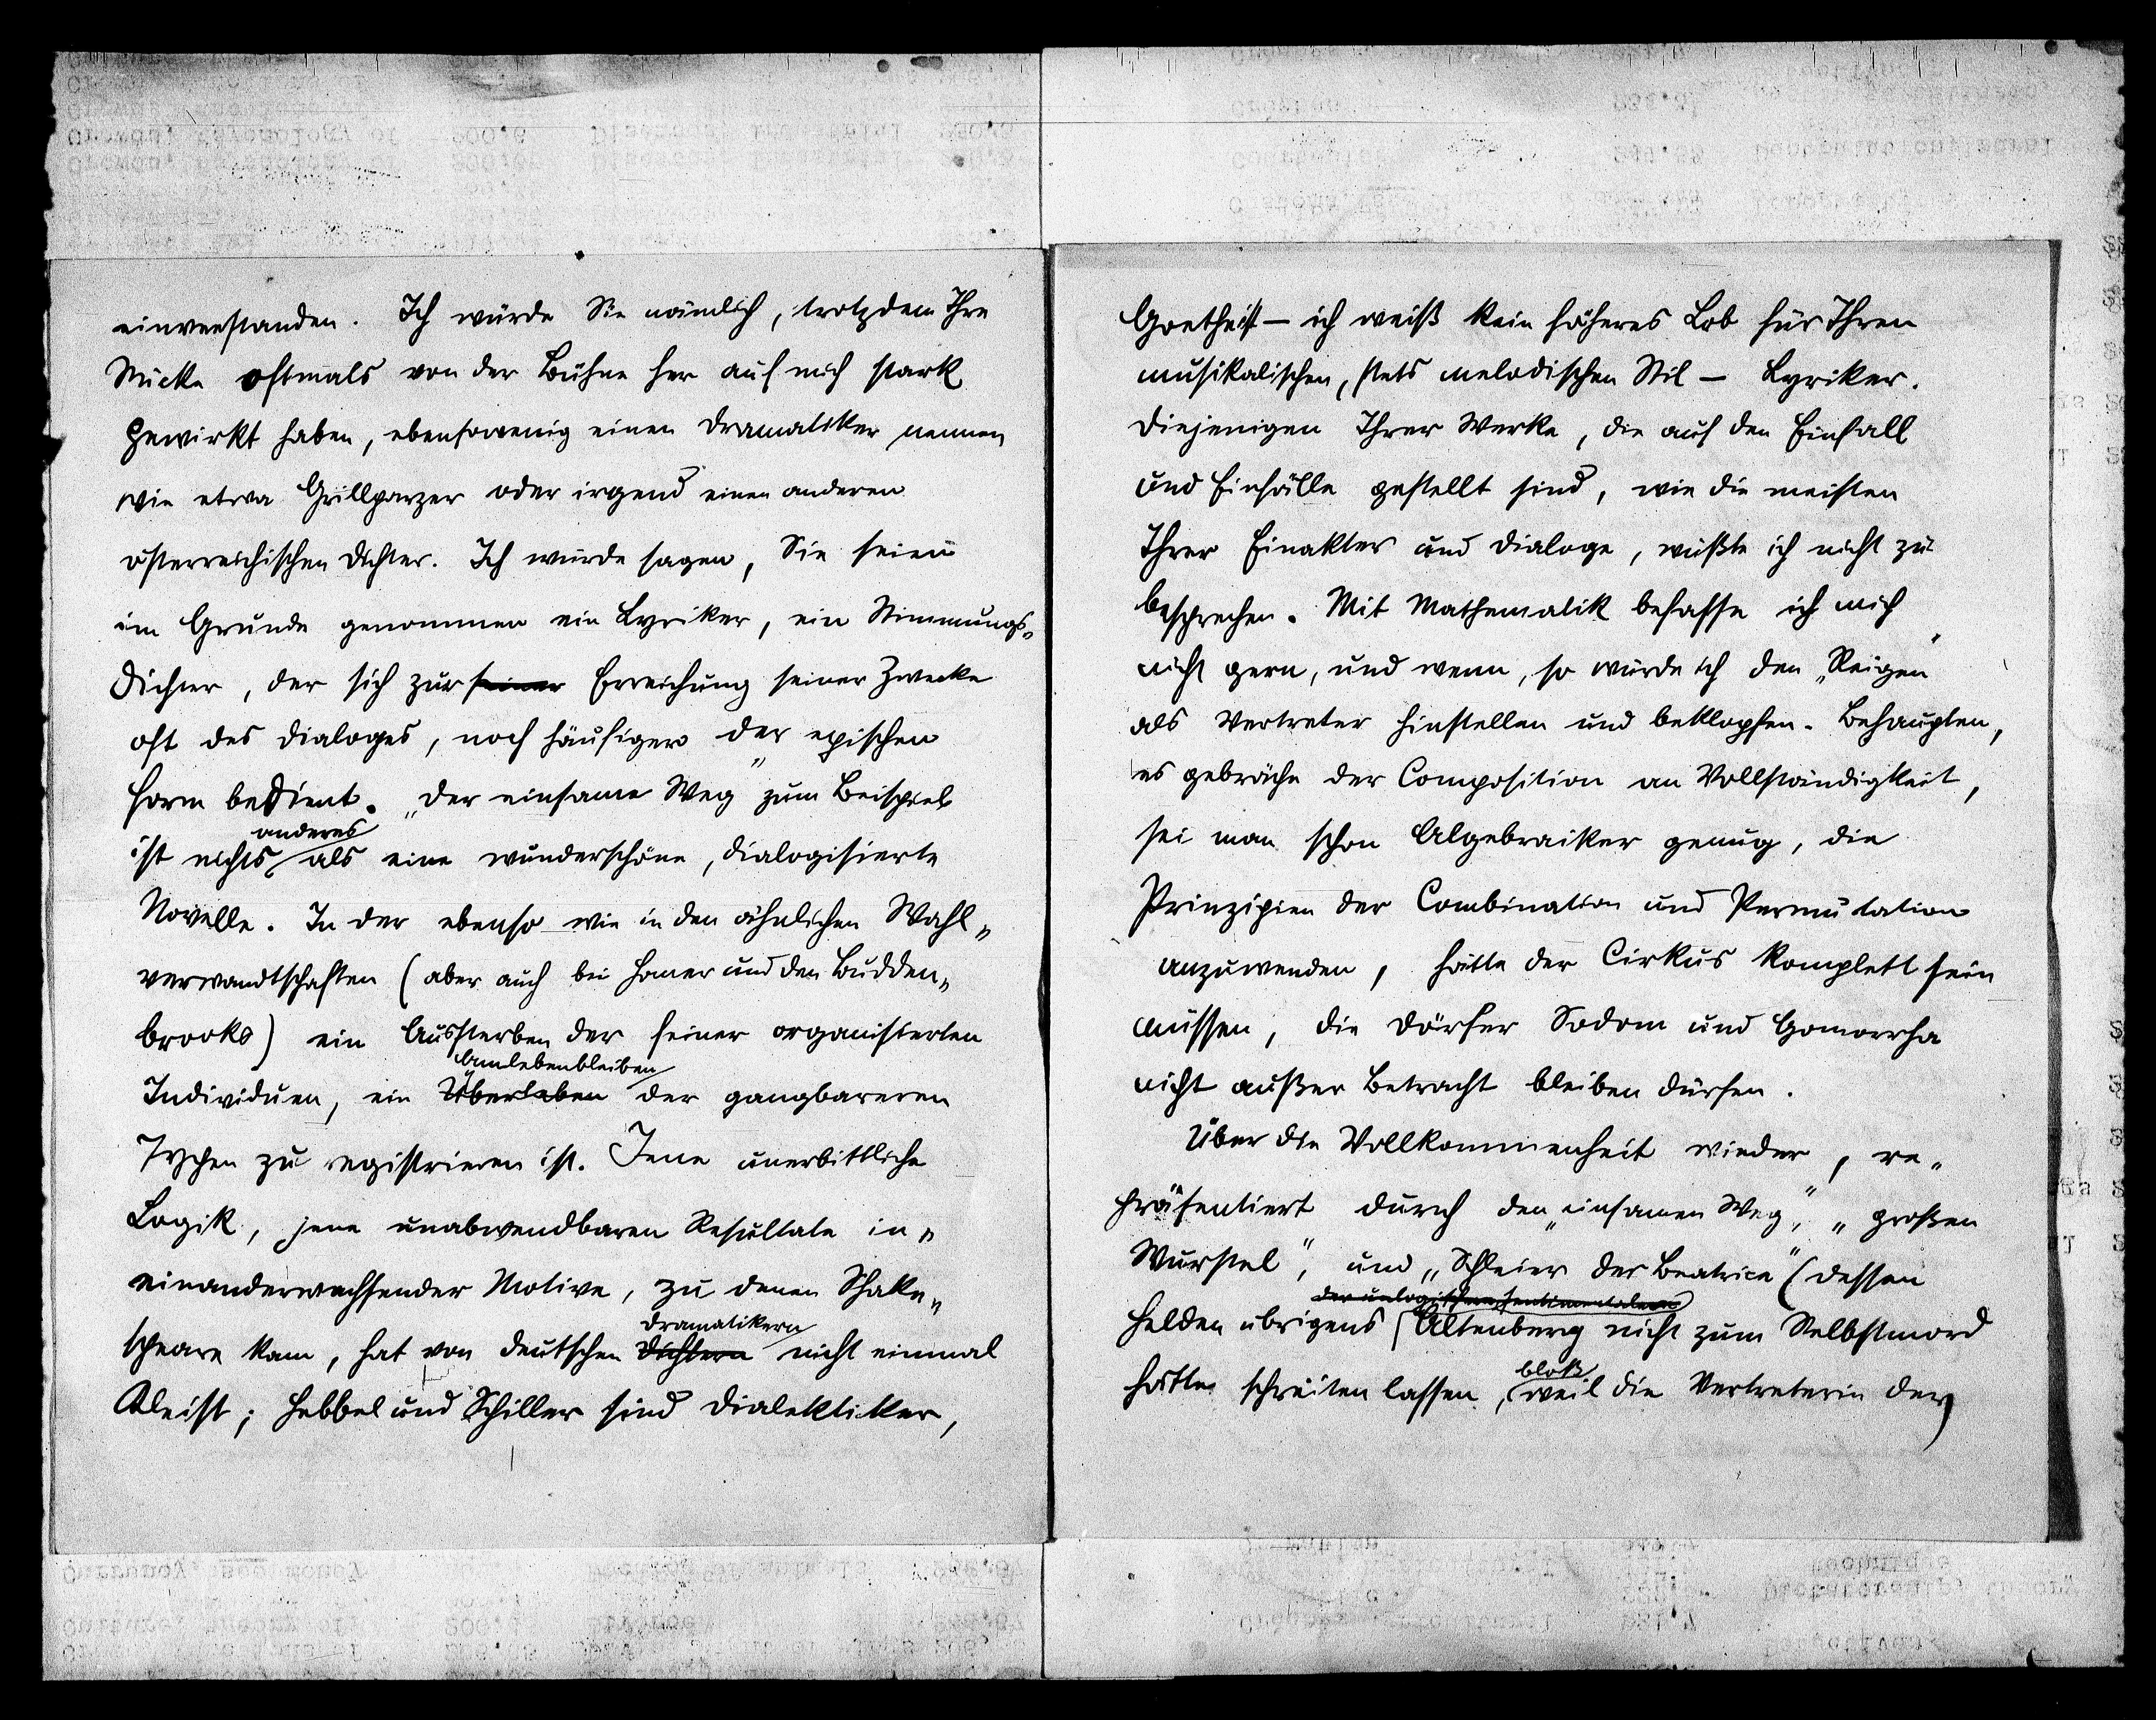 einverstanden. Ich würde Sie nämlich, trotzdem Ihre
Stücke oftmals von der Bühne her auf mich stark
gewirkt haben, ebensowenig einen Dramatiker nennen
wie etwa Grillparzer oder irgend einen anderen
österreichischen Dichter. Ich würde sagen, Sie seien
im Grunde genommen ein Lyriker, ein Stimmungs-
dichter, der sich zur seiner Erreichung seiner Zwecke
oft des Dialoges, noch häufiger der epischen
Form bedient. „Der einsame Weg" zum Beispiel
anderes
ist nichts als eine wunderschöne, dialogisierte
Novelle. In der ebenso wie in den ähnlichen Wahl-
verwandtschaften (aber auch bei Homer und den Budden-
brooks) ein Aussterben der feiner organisierten
Amlebenbleiben
Individuen, ein Überleben der gangbareren
Typen zu registrieren ist. Jene unerbittliche
Logik, jene unabwendbaren Resultate in-
einanderwachsender Motive, zu denen Shake-
dramatikern
speare kam, hat von deutschen Dichtern nicht einmal
Kleist; Hebbel und Schiller sind Dialektiker,
Goethe ist – ich weiß kein höheres Lob für Ihren
musikalischen, stets melodischen Stil – Lyriker.
Diejenigen Ihrer Werke, die auf den Einfall
und Einfälle gestellt sind, wie die meisten
Ihrer Einakter und Dialoge, wüßte ich nicht zu
besprechen. Mit Mathematik befasse ich mich
nicht gern, und wenn, so würde ich den „Reigen"
als Vertreter hinstellen und beklopfen. Behaupten,
es gebräche der Composition an Vollständigkeit,
sei man schon Algebraiker genug, die
Prinzipien der Combination und Permutation
anzuwenden, hätte der Cirkus komplett sein
müssen, die Dörfer Sodom und Gomorrha
nicht außer Betracht bleiben dürfen.
Über die Vollkommenheit wieder, re-
präsentiert durch den „einsamen Weg", „großen
Wurstel", und „Schleier der Beatrice" (dessen
der unlogischen sentimentalen
Helden übrigens Altenberg nicht zum Selbstmord
bloß
hätte schreiten lassen, weil die Vertreterin der)